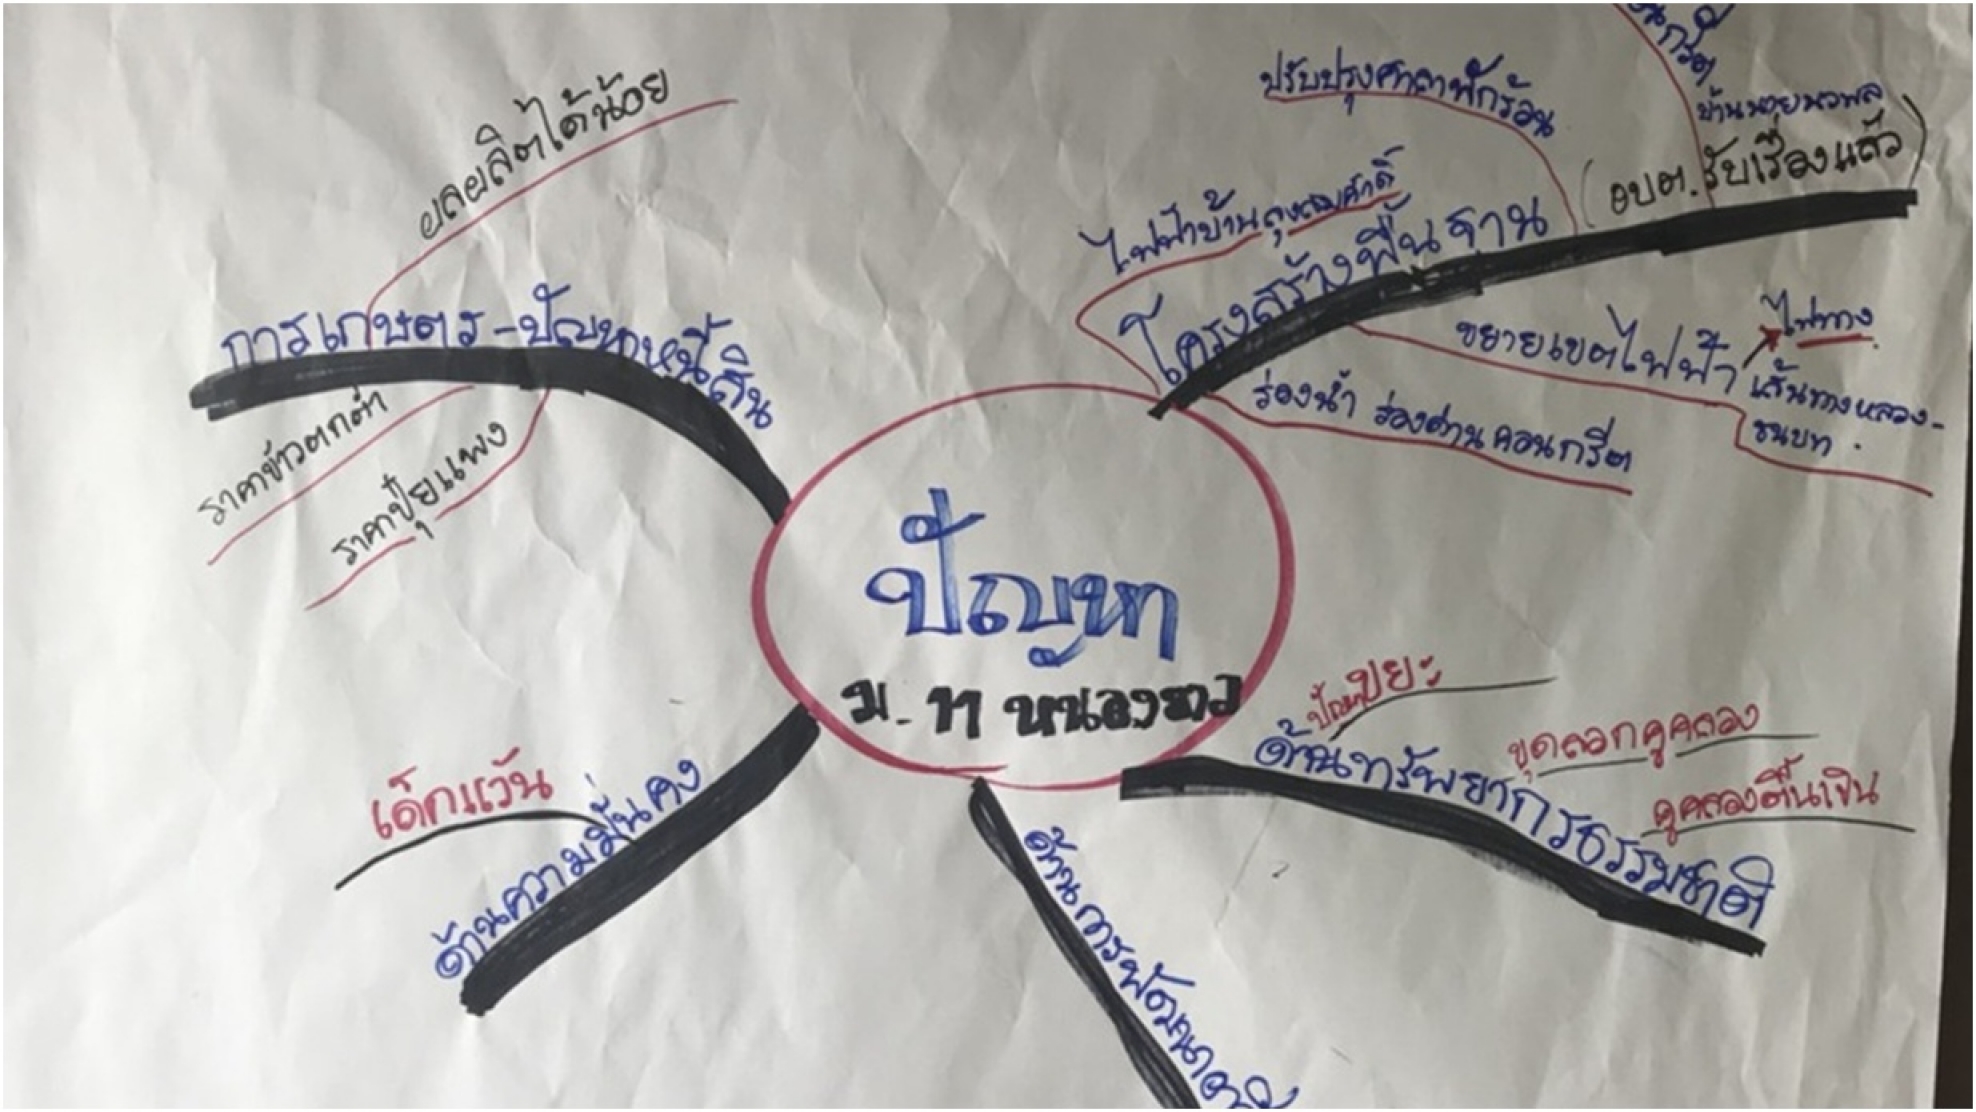 ปัญหา
ม. 11 หนองขาว
การเกษตร-ปัญหาหนี้สิน
ผลผลิตได้น้อย
ราคาข้าวตกต่ำ
ราคาปุ๋ยแพง
โครงสร้างพื้นฐาน
ไฟฟ้าบ้านลุงสมศักดิ์
ปรับปรุงศาลาพักร้อน
บ้านนายนวพล
(อบต. รับเรื่องแล้ว)
ขยายเขตไฟฟ้า
ไฟทาง
เส้นทางหลวง-
ชนบท.
ร่องน้ำ ร่องด่านคอนกรีต
ด้านทรัพยากรธรรมชาติ
ปัญหาขยะ
ขุดลอกคูคลอง
คูคลองตื้นเขิน
ด้านความมั่นคง
เด็กแว้น